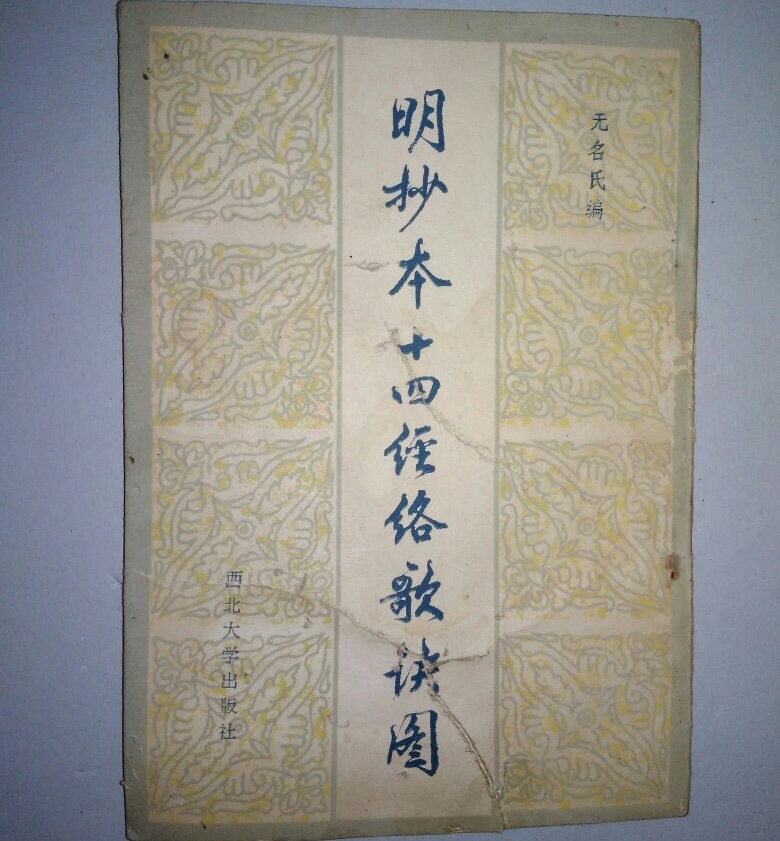 无名氏编
明抄本十四经络歌诀图
西北大学出版社